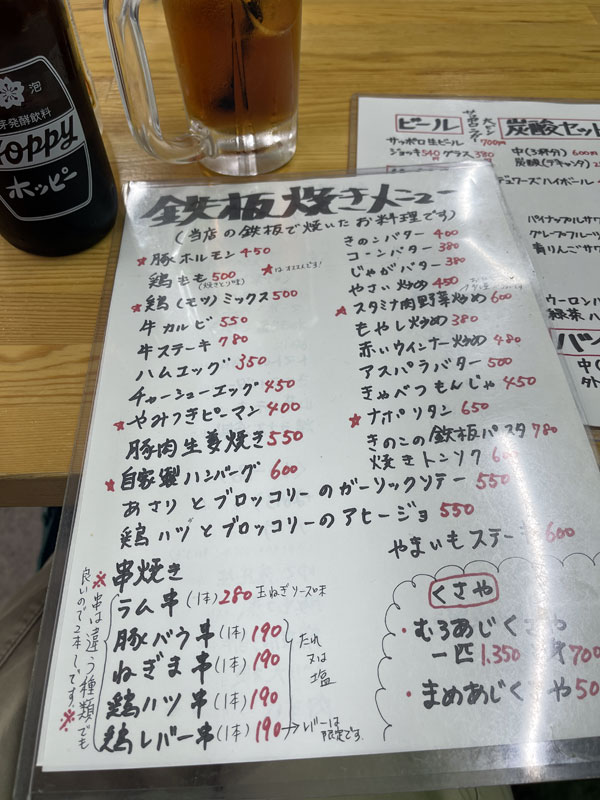 泡
芽発酵飲料
Hoppy
ホッピー
ビール
サッポロ生ビール 700円
ジョッキ540 グラス380
炭酸セット
中(3杯分) 600円
炭酸(ヴキャンタ)
ハイボール
パイナップルサワ
グレープフルーツ
青りんごサワ
ウーロンハ
緑茶ハ
鉄板焼きメニュー
(当店の鉄板で焼いたお料理です)
★豚ホルモン 450
鶏もも 500 ★はオススメです!
(焼きとり味)
★鶏(モツ)ミックス 500
牛カルビ 550
牛ステーキ 780
ハムエッグ 350
チャーシューエッグ 450
★やみつきピーマン 400
豚肉生姜焼き 550
★自家製ハンバーグ 600
あさりとブロッコリーのガーリックソテー 550
鶏ハツとブロッコリーのアヒージョ 550
きのこバター 400
コーンバター 380
じゃがバター 380
やさい炒め 450
★スタミナ肉野菜炒め 600
もやし炒め 380
赤いウインナー炒め 480
アスパラバター 500
きゃべつもんじゃ 450
★ナポリタン 650
きのこの鉄板パスタ 780
焼きトンソク
やまいもステーキ 600
串焼き
ラム串(1本) 280 玉ねぎソース味
豚バラ串(1本) 190
ねぎま串(1本) 190
鶏ハツ串(1本) 190
鶏レバー串(1本) 190 →レバーは限定です
たれ又は塩
※串は違う種類でも
良いので2本〜です。※
くさや
・むろあじくさや
一匹 1.350 700
・まめあじく や 50